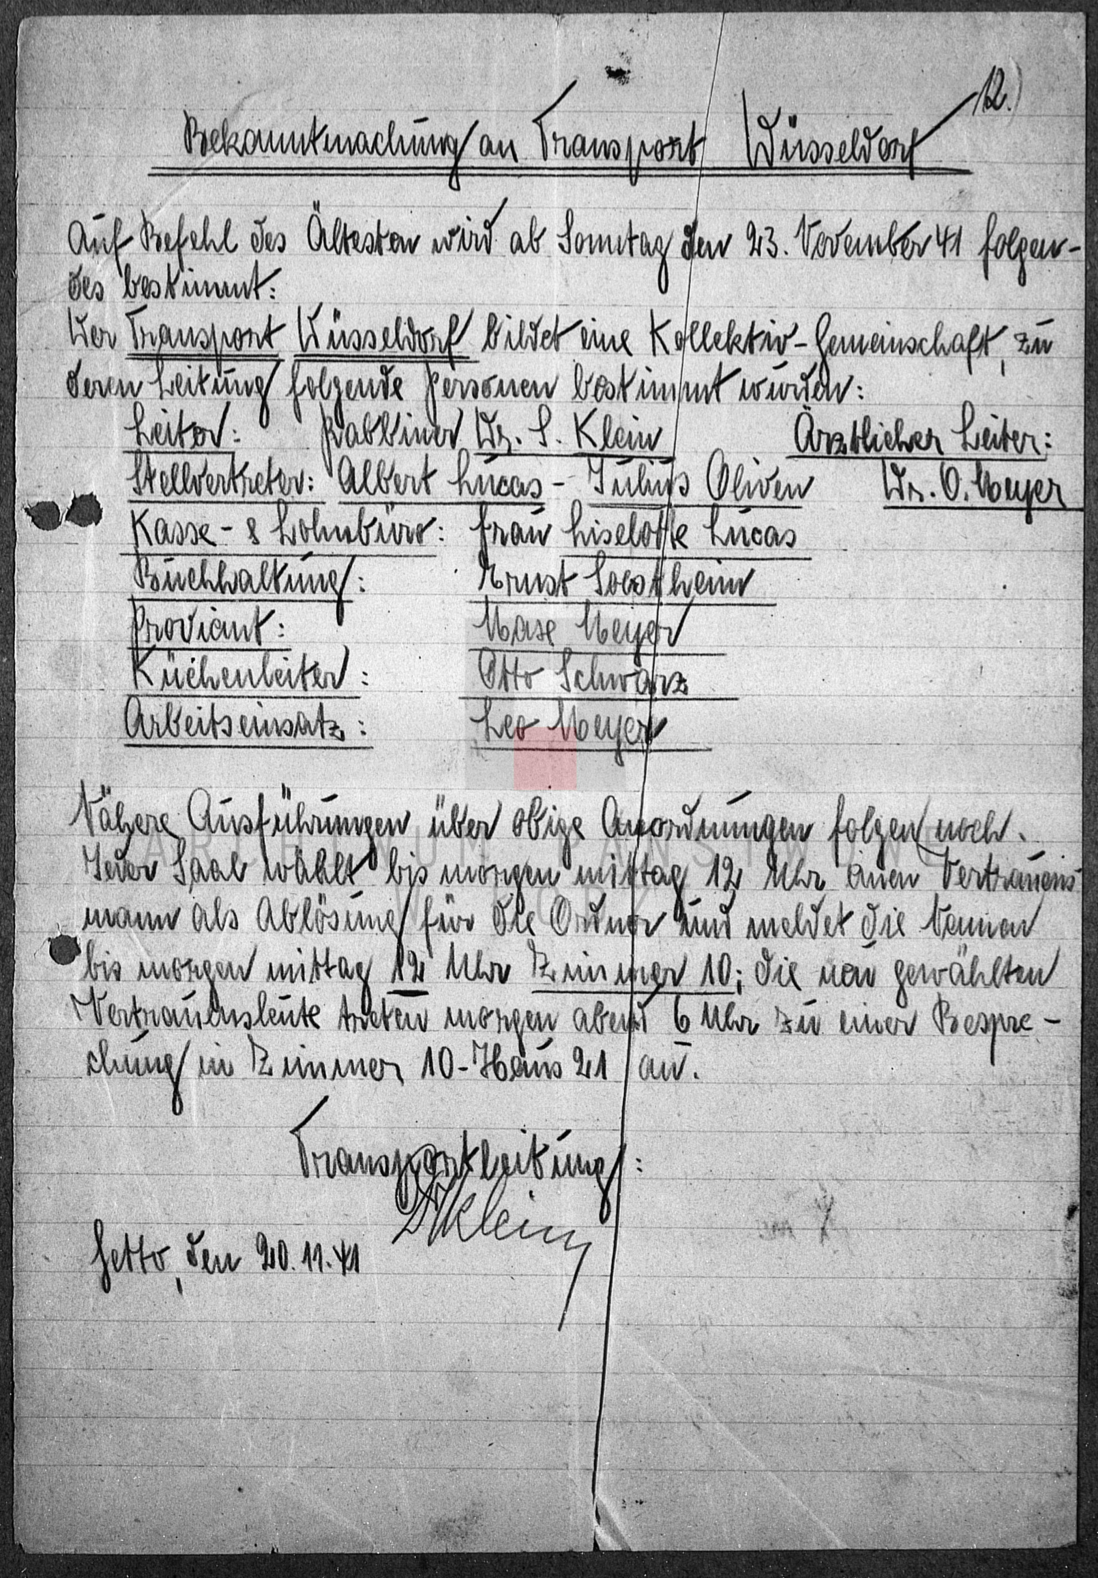 12.)
Bekanntmachung an Transport Düsseldorf
Auf Befehl des Ältesten wird ab Sonntag den 23. November 41 folgen-
des bestimmt:
Der Transport Düsseldorf bildet eine Kollektiv-Gemeinschaft, zu
deren Leitung folgende Personen bestimmt wurden:
Leiter: Rabbiner Dr. S. Klein Ärztlicher Leiter:
Stellvertreter: Albert Lucas - Julius Oliven Dr. O. Meyer
Kasse- & Lohnbüro: Frau Liselotte Lucas
Buchhaltung: Ernst Soestheim
Proviant: Maxe Meyer
Küchenleiter: Otto Schwarz
Arbeitseinsatz: Leo Meyer
Nähere Ausführungen über obige Anordnungen folgen noch.
Jeder Saal wählt bis morgen mittag 12 Uhr einen Vertrauens
mann als Ablösung für die Ordner und meldet die Namen
bis morgen mittag 12 Uhr Zimmer 10; die neu gewählten
Vertrauensleute treten morgen abend 6 Uhr zu einer Bespre-
chung in Zimmer 10-Haus 21 an.
Transportleitung:
Dr Klein
Getto, den 20.11.41
ARCHIWUM PAŃSTWOWE
W ŁODZI